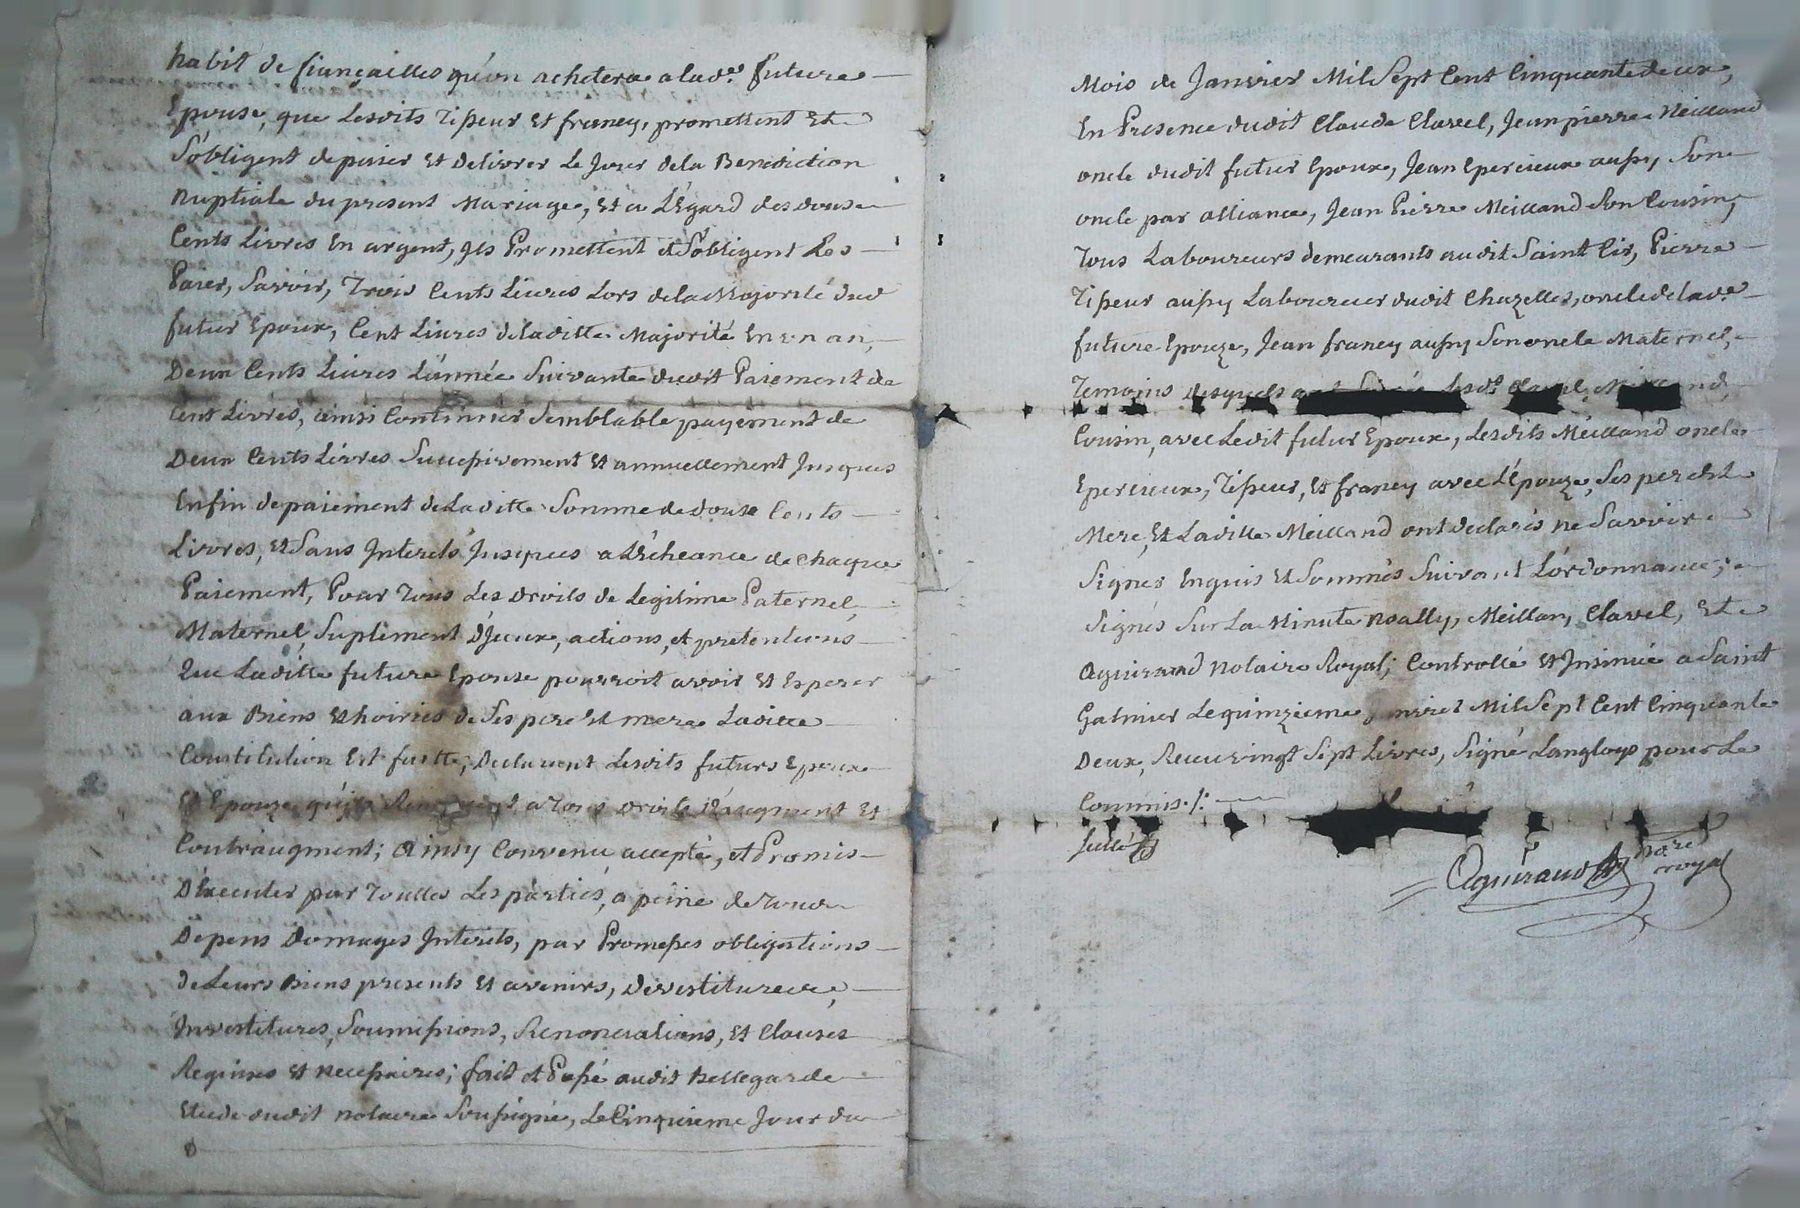 habit de fiançailles qu'on achetera a lad.e future
Epouse, que Lesdits Tisseur Et franey, promettent Et
S'obligent de païer Et delivrer Le Jour de la Benediction
nuptiale du present Mariage, Et a L'Egard des douse
Cents Livres En argent, Ils Promettent et S'obligent Les
Païer, Savoir, Trois Cents Livres Lors de la Majorité dud
futur Epoux, Cent Livres de laditte Majorité En un an,
Deux Cents Livres L'année Suivante dudit Paiement de
Cent Livres, ainsi Continuer Semblable payement de
Deux Cents Livres Successivement Et annuellement Jusques
Enfin de paiement de Laditte Somme de douse Cents
Livres, Et Sans Interets Jusques a L'écheance de chaque
Paiement, Pour Tous Les Droits de Legitime Paternel,
Maternel, Suplement D'Iceux, actions, et pretentions
Que Laditte future Epouse pourroit avoir Et Esperer
aux Biens Et hoiries de Ses pere Et mere Laditte
Constitution Est faitte; Declarent Lesdits futurs Epoux
Et Epouze, qu'ils Renoncent a Tous Droits D'augment Et
Contraugment; Ainsy Convenu accepté, et Promis
D'éxecuter par Touttes Les parties, a peine de Tous
Dépens Domages Interets, par Promesses obligations
de Leurs Biens presents Et avenirs, Devestitures,
Investitures, Soumissions, Renonciations, Et Clauses
Requises Et necessaires; fait et Passé audit Bellegarde
Etude dudit notaire Soussigné, Le Cinquieme Jour du
Mois de Janvier Mil Sept Cent Cinquante deux,
En Presence dudit Claude Clavel, Jean pierre Meilland
oncle dudit futur Epoux, Jean Epercieux aussy Son
oncle par alliance, Jean Pierre Meilland Son Cousin,
Tous Laboureurs demeurants audit Saint Cir, Pierre
Tisseur aussy Laboureur dudit Chazelles, oncle de lad.e
future Epouze, Jean franey aussy Son oncle Maternel,
Temoins desquels ont Signé lesd.s Clavel, Meilland
Cousin, avec Ledit futur Epoux, Lesdits Meilland oncle
Epercieux, Tisseur, Et franey avec L'Epouze, Ses pere Et
Mere, Et Laditte Meilland ont declarés ne Savoir
Signer Enquis Et Sommés Suivant L'ordonnance;
Signés Sur La Minute noally, Meillan, Clavel, Et
Aguiraud notaire Royal; Controllé Et Insinué a Saint
Galmier Le quinzieme Janvier Mil Sept Cent Cinquante
Deux, Receu vingt Sept Livres, Signé Langloys pour Le
Commis ./.
Aguiraud
no.re
royal